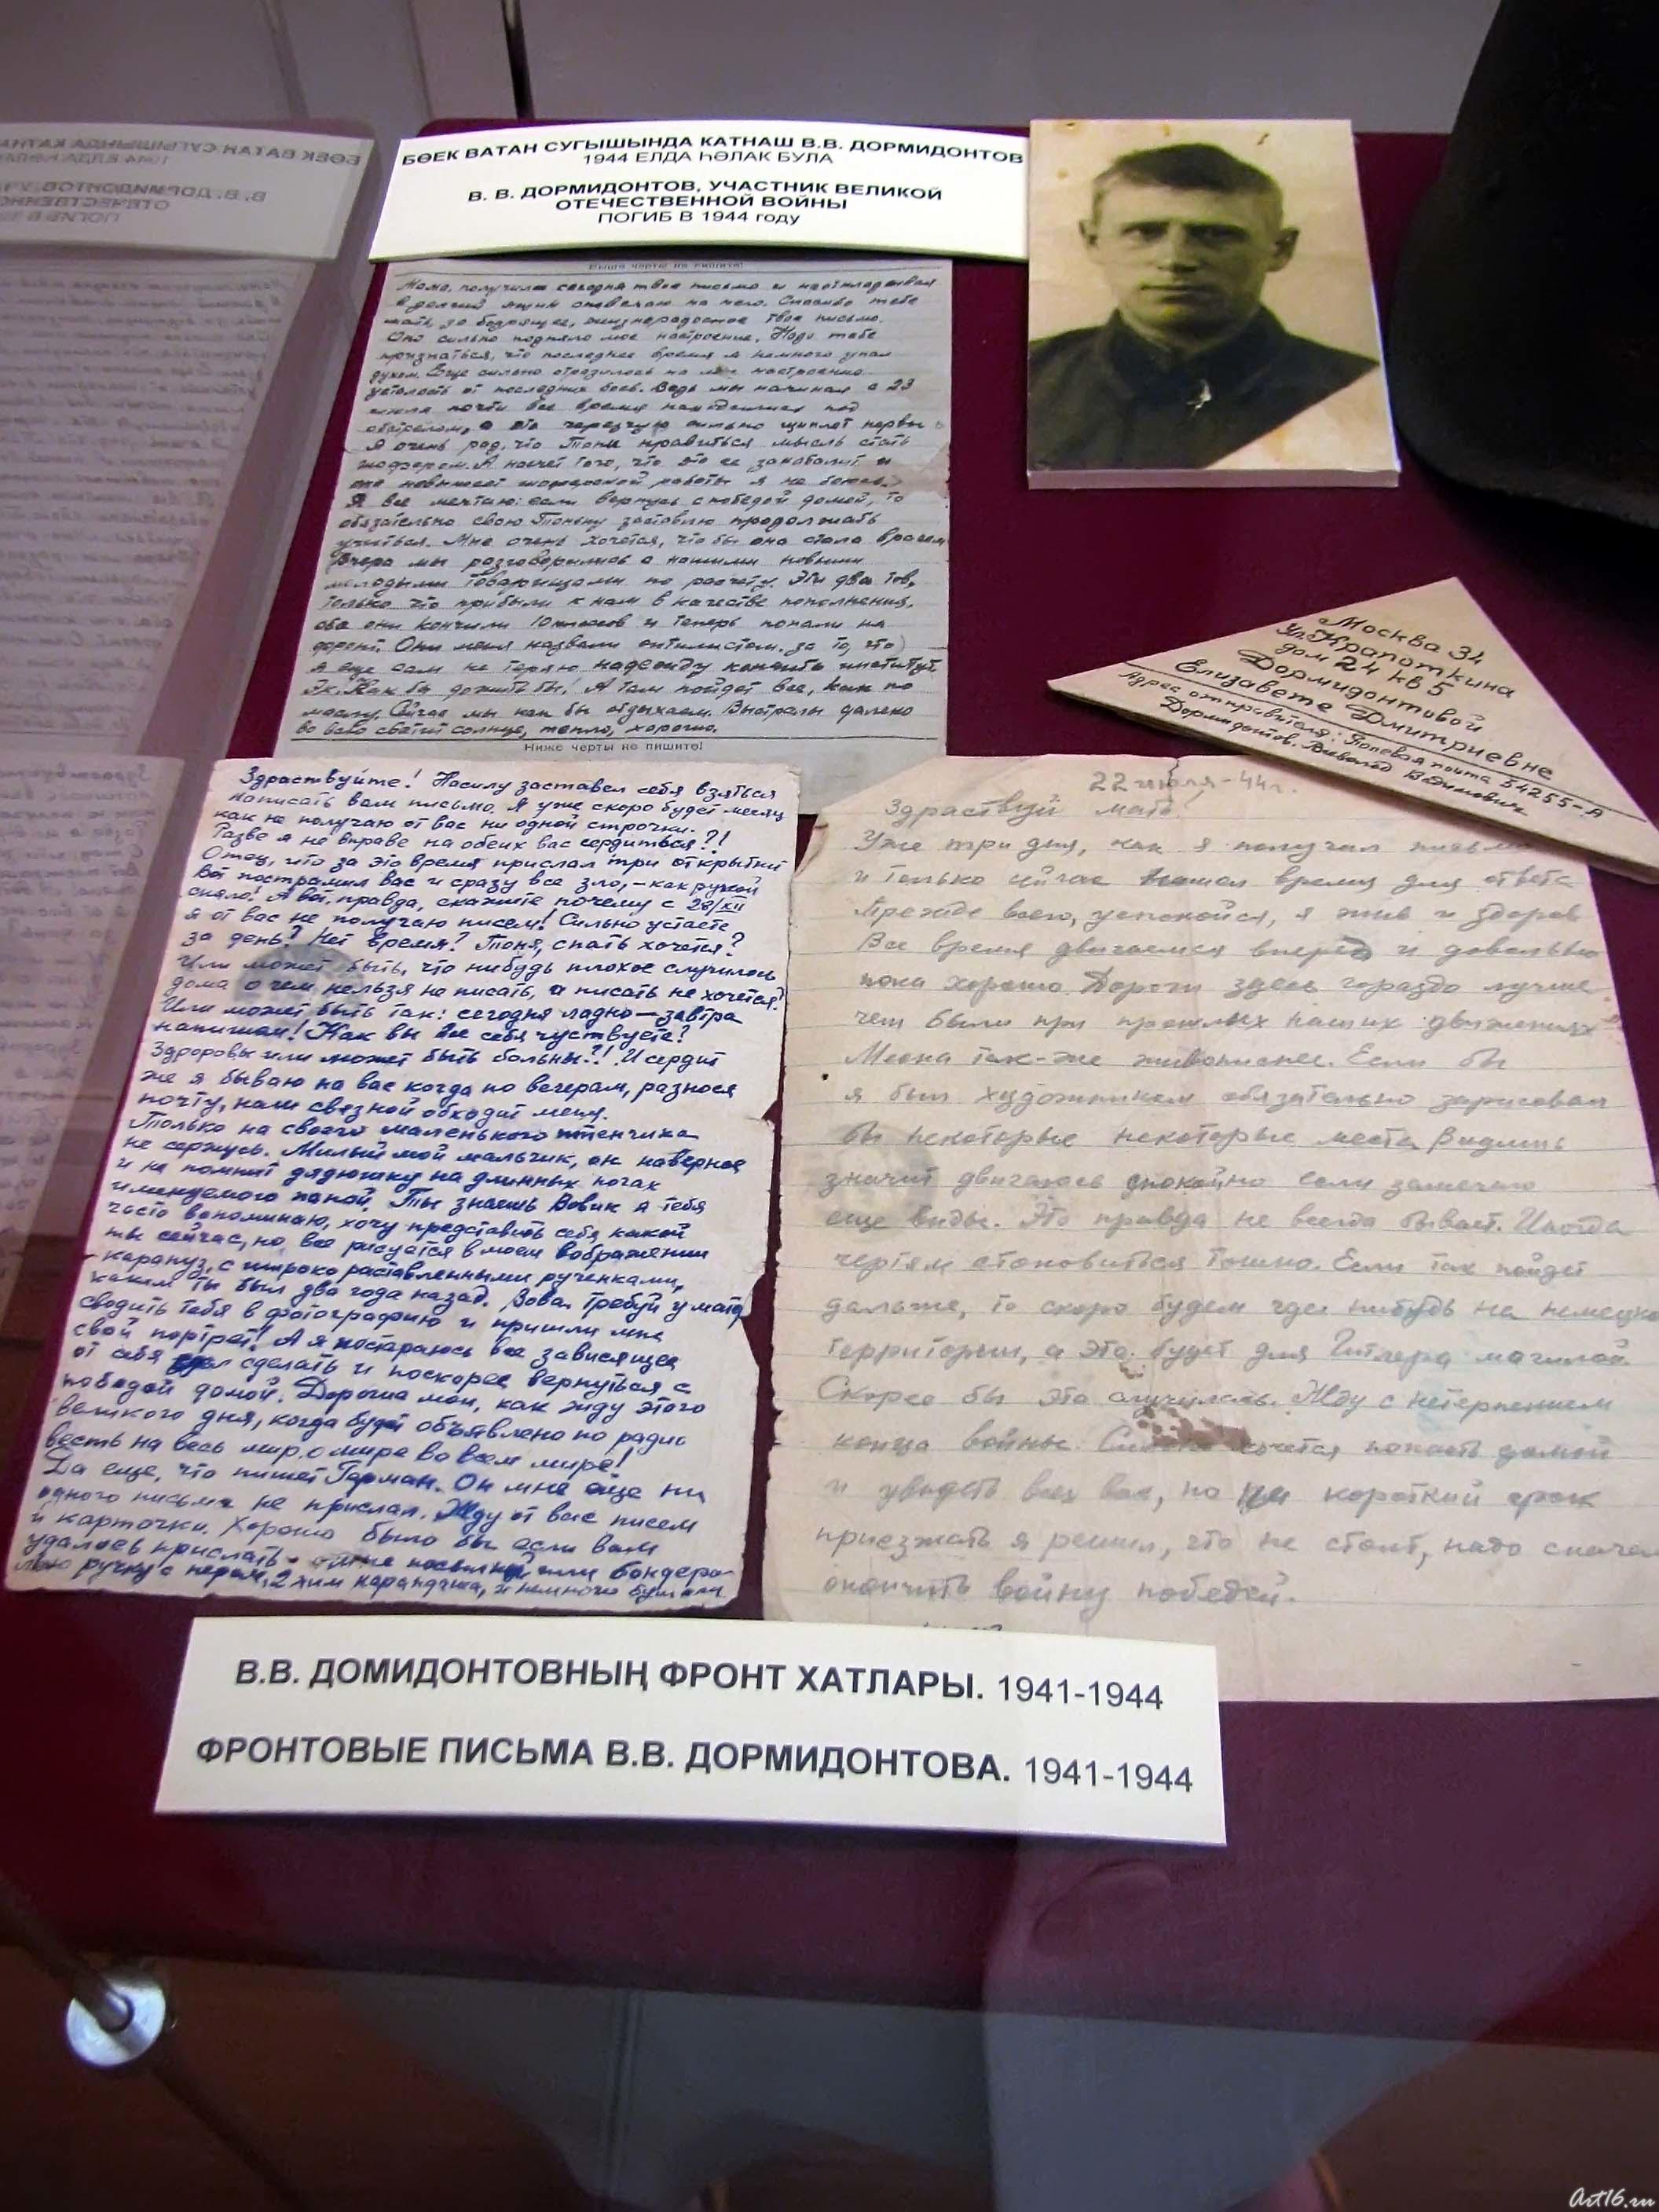 БӨЕК ВАТАН СУГЫШЫНДА КАТНАШ В.В. ДОРМИДОНТОВ
1944 ЕЛДА ҺӨЛАК БУЛА
В. В. ДОРМИДОНТОВ, УЧАСТНИК ВЕЛИКОЙ
ОТЕЧЕСТВЕННОЙ ВОЙНЫ
ПОГИБ В 1944 году
Выше черты не пишите!
Мама, получил сегодня твое письмо и неоткладывая
в долгий ящик отвечаю на него. Спасибо тебе
мать, за бодрящее, жизнерадостное твое письмо.
Оно сильно подняло мое настроение. Надо тебе
признаться, что последнее время я немного упал
духом. Еще сильно отразилось на мое настроение
усталость от последних боев. Ведь мы начиная с 23
июля почти все время находимся под
обстрелом, а это черезчур сильно щиплет нервы
Я очень рад, что Тоне нравиться мысль стать
шофером. А насчет того, что это ее закабалит и
она шоферской работы я не боюсь.
Я все мечтаю: если вернусь с победой домой, то
обязательно свою Тонечку заставлю продолжать
учиться. Мне очень хочется, чтобы она стала врачем
Вчера мы разговорились с нашими новыми
молодыми товарищами по расчету. Эти два тов.
только что прибыли к нам в качестве пополнения,
оба они кончили 10 классов и теперь попали на
фронт. Они меня назвали оптимистом за то, что
я еще сам не теряю надежду кончить институт.
Эх, Как бы дожить бы! А там пойдет все, как по
маслу. Сейчас мы как бы отдыхаем. Выстрелы далеко
во всю светит солнце, тепло, хорошо.
Ниже черты не пишите!
Москва 34
Ул. Крапоткина
дом 24 кв 5
Дормидонтовой
Елизавете Дмитриевне
Адрес отправителя: Полевая почта 54255-А
Дормидонтов. Вадимович
Здраствуйте! Насилу заставел себя взяться
написать вам письмо. Я уже скоро будет месяц
как не получаю от вас ни одной строчки.
Разве я не вправе на обеих вас сердиться?!
Отец, что за это время прислал три открытки
Вот пострамил вас и сразу все зло, – как рукой
сняло! А вот, правда, скажите почему с 28/XII
я от вас не получаю писем! Сильно устаете
за день? Нет время? Тоня, спать хочется?
Или может быть, что нибудь плохое случилось
дома о чем нельзя не писать, а писать не хочется?
Или может быть так: сегодня ладно – завтра
напишем! Как вы все себя чуствуете?
Здоровы или может быть больны?! И сердит
же я бываю на вас когда по вечерам, разнося
почту, наш связной обходит меня.
Только на своего маленького птенчика
не сержусь. Милый мой мальчик, он наверное
и не помнит дядюшку на длинных ногах
именуемого папой. Ты знаешь Вовик я тебя
часто вспоминаю, хочу представить себя какой
ты сейчас, но все рисуется в моем вображении
карапуз, с широко раставленными рученками,
каким ты был два года назад. Вова, требуй у мамы
сводить тебя в фотографию и пришли мне
свой портрет! А я постараюсь все зависящее
от себя сделать и поскорее вернуться с
победой домой. Дорогие мои, как жду этого
великого дня, когда будет объявлено по радио
весть на весь мир о мире во всем мире!
Да еще, что пишет Герман. Он мне еще ни
одного письма не прислал. Жду от вас писем
и карточки. Хорошо было бы если вам
удалось прислать мне посылку или бондеро-
лью ручку с пером, 2 хим карандаша, и немного бумаги
22 июля - 44 г.
Здраствуй мать!
Уже три дня, как я получил письмо
и только сейчас нашел время для ответа
Прежде всего, успокойся, я жив и здоров
Все время двигаемся вперед и довольно
пока хорошо. Дороги здесь гораздо лучше
чем были при прошлых наших движениях
Места так-же живописнее. Если бы
я был художником обязательно зарисовал
бы некоторые некоторые места. Видишь
значит двигаюсь спокойно если замечаю
еще виды. Это правда не всегда бывает. Иногда
чертям становиться тошно. Если так пойдет
дальше, то скоро будем где нибудь на немецкой
территории, а это будет для Гитлера могилой.
Скорее бы это случилось. Жду с нетерпением
конца войны. Сильно хочется попасть домой
и увидеть всех вас, но на короткий срок
приезжать я решил, что не стоит, надо сначала
окончить войну победой.
В.В. ДОМИДОНТОВНЫҢ ФРОНТ ХАТЛАРЫ. 1941-1944
ФРОНТОВЫЕ ПИСЬМА В.В. ДОРМИДОНТОВА. 1941-1944
Art16.ru